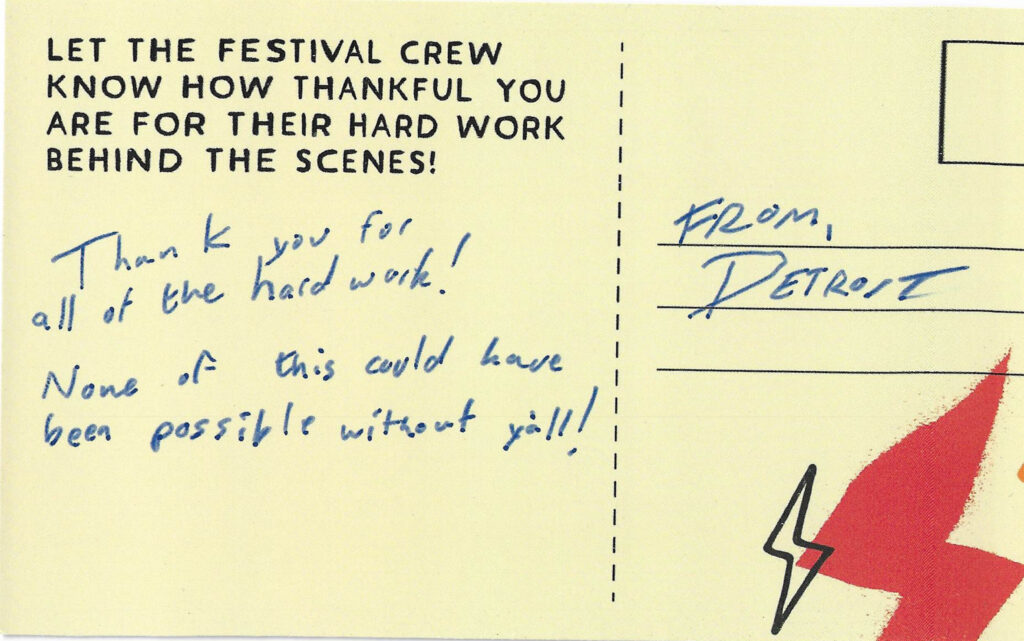 LET THE FESTIVAL CREW
KNOW HOW THANKFUL YOU
ARE FOR THEIR HARD WORK
BEHIND THE SCENES!
Thank you for
all of the hard work!
None of this could have
been possible without y'all!
FROM,
DETROIT